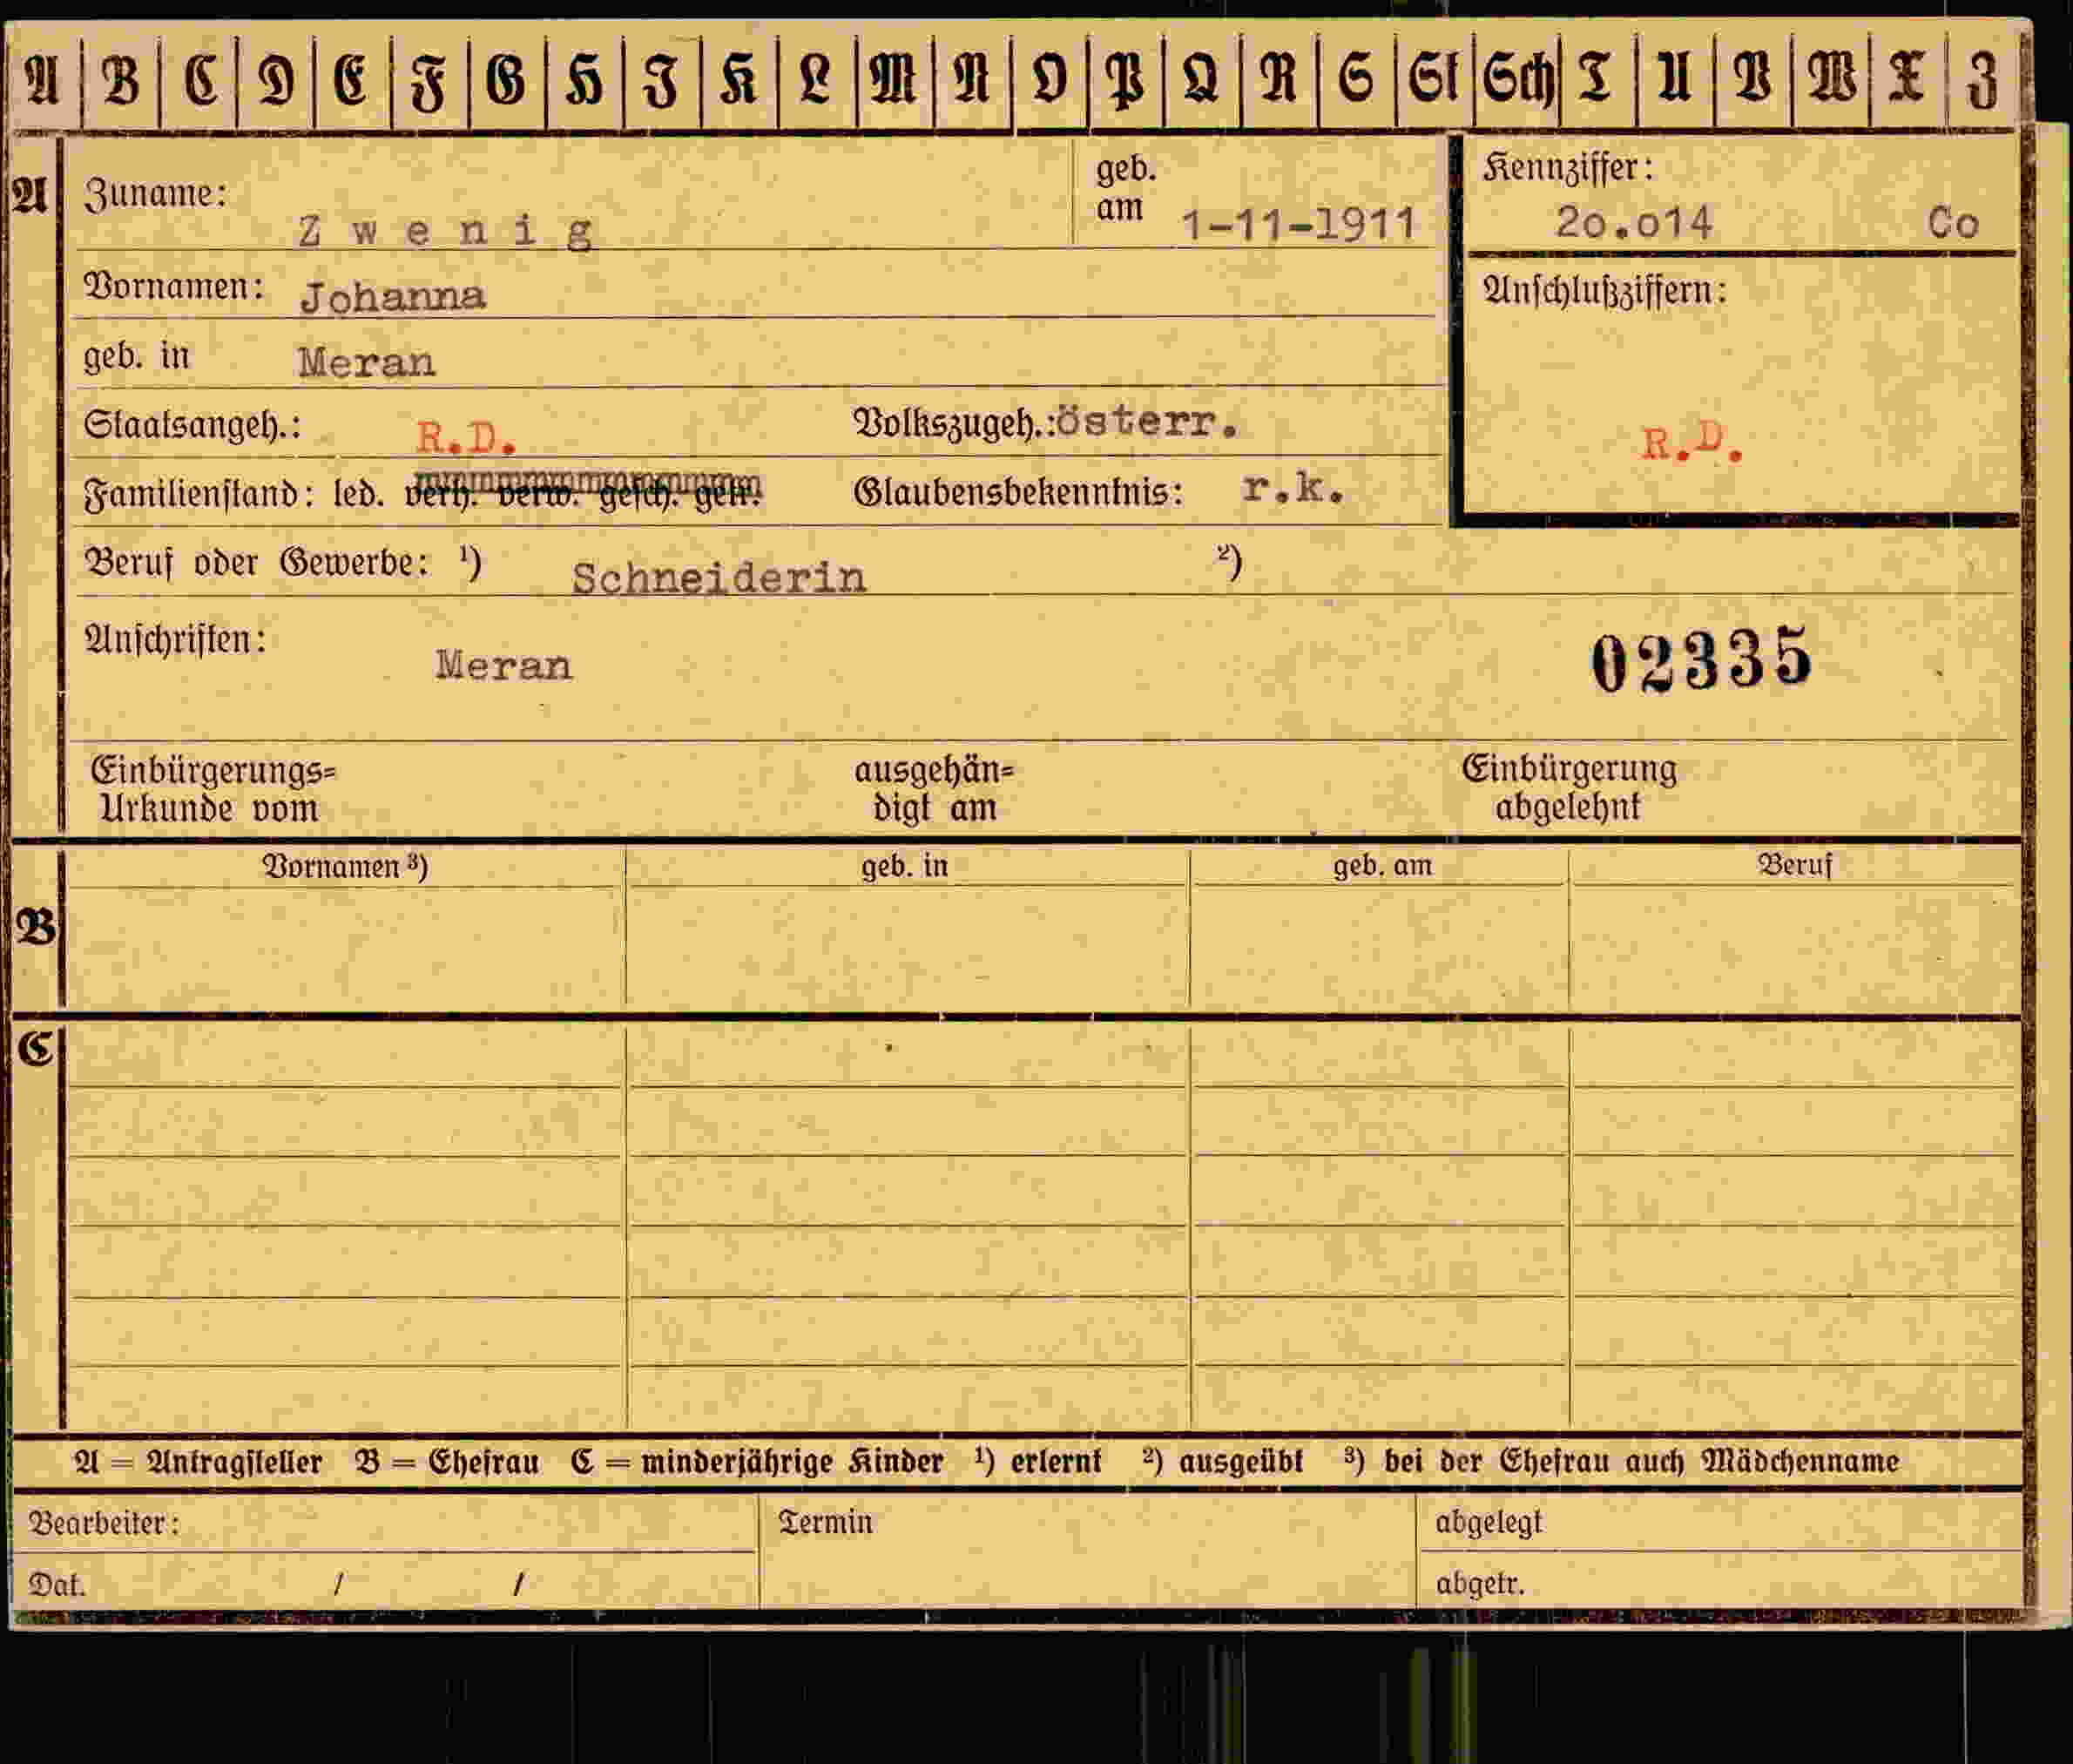 A B C D E F G H I K L M N O P Q R S St Sch T U V W X Z
A Zuname: Zwenig geb. am 1-11-1911 Kennziffer: 2o.o14 Co
Vornamen: Johanna Anschlußziffern:
geb. in Meran
Staatsangeh.: R.D. Volkszugeh.: österr. R.D.
Familienstand: led. verh. verw. gesch. getr. Glaubensbekenntnis: r.k.
Beruf oder Gewerbe: ¹) Schneiderin ²)
Anschriften: Meran 02335
Einbürgerungs= ausgehän= Einbürgerung
Urkunde vom digt am abgelehnt
Vornamen ³) geb. in geb. am Beruf
B
C
A = Antragsteller B = Ehefrau C = minderjährige Kinder ¹) erlernt ²) ausgeübt ³) bei der Ehefrau auch Mädchenname
Bearbeiter: Termin abgelegt
Dat. / / abgetr.